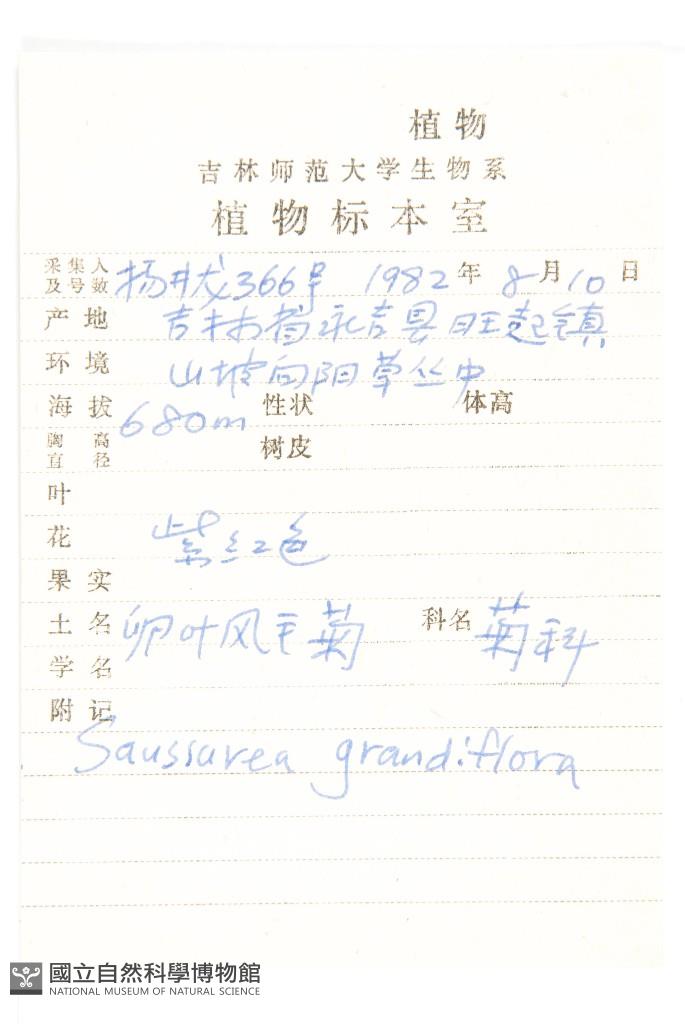 植物
吉林师范大学生物系
植物标本室
采集人及号数 杨井戈366号 1982年8月10日
产地 吉林省永吉县旺起镇
环境 山坡向阳草丛中
海拔 680m 性状 体高
胸高直径 树皮
叶
花 紫红色
果实
土名 卵叶风毛菊 科名 菊科
学名
附记
Saussurea grandiflora
國立自然科學博物館
NATIONAL MUSEUM OF NATURAL SCIENCE